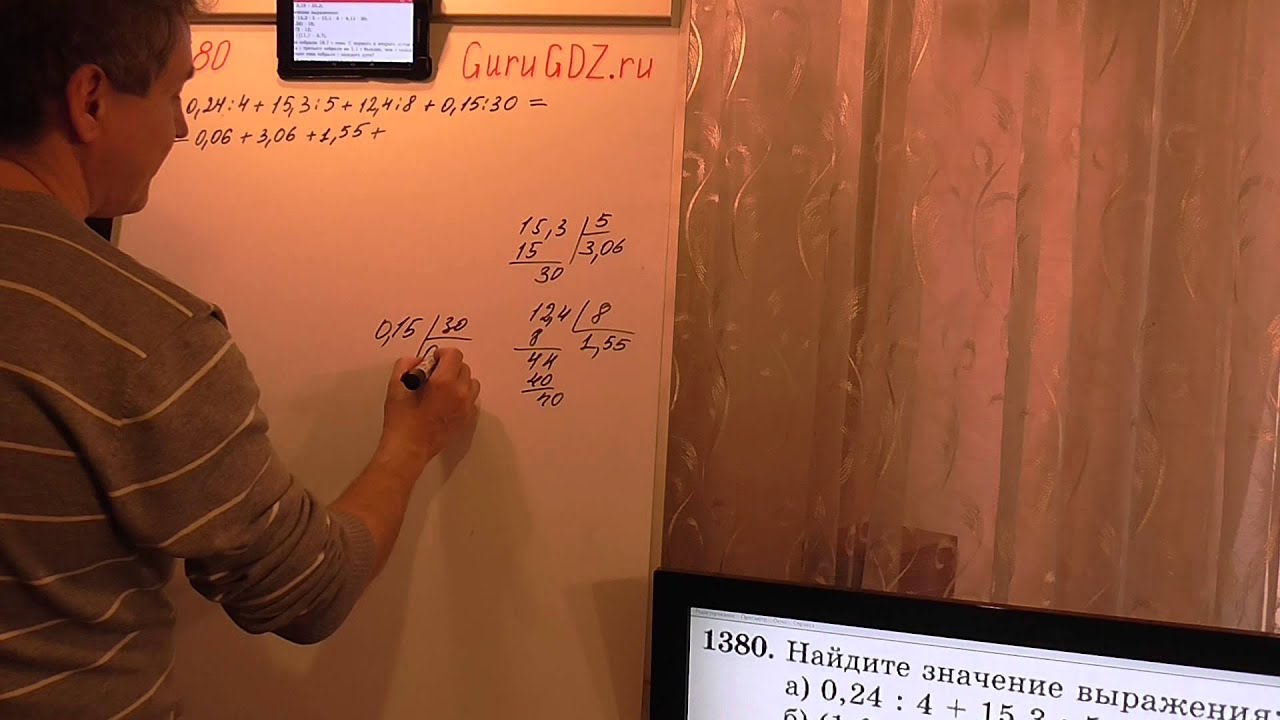 80 GuruGDZ.ru
0,24:4 + 15,3:5 + 12,4:8 + 0,15:30 =
= 0,06 + 3,06 + 1,55 +
15,3 5
15 3,06
30
0,15 30
12,4 8
8 1,55
44
40
40
1380. Найдите значение выражения:
а) 0,24 : 4 + 15,3 : 5